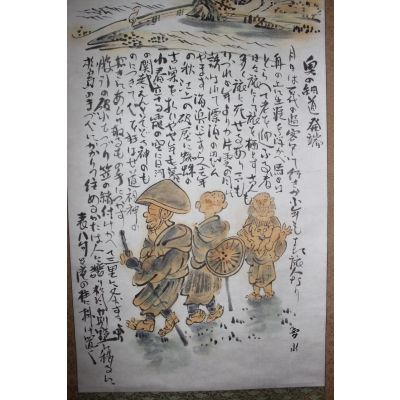 奥の細道 発端
月日は百代の過客にして行かふ年も又旅人なり
舟の上に生涯をうかべ馬の口
とらえて老を迎ふる者は
日々旅にして旅を栖とす古人
も多く旅に死せるあり
いづれの年よりか片雲の風に
誘はれて漂泊の思ひ
やまず海浜にさすらへ去年
の秋江上の破屋に蜘蛛の
古巣をはらひてやや年も暮
春立る霞の空に白河
の関越えんとそぞろ神のも
のにつきて心を狂はせ道祖神の
まねきにあひて取るもの手につかず
股引の破れをつづり笠の緒付けかへて三里に灸すゆる
松島の月まづ心にかかりて住める方は人に譲り杉風が別墅に移るに
表八句を庵の柱に掛け置く